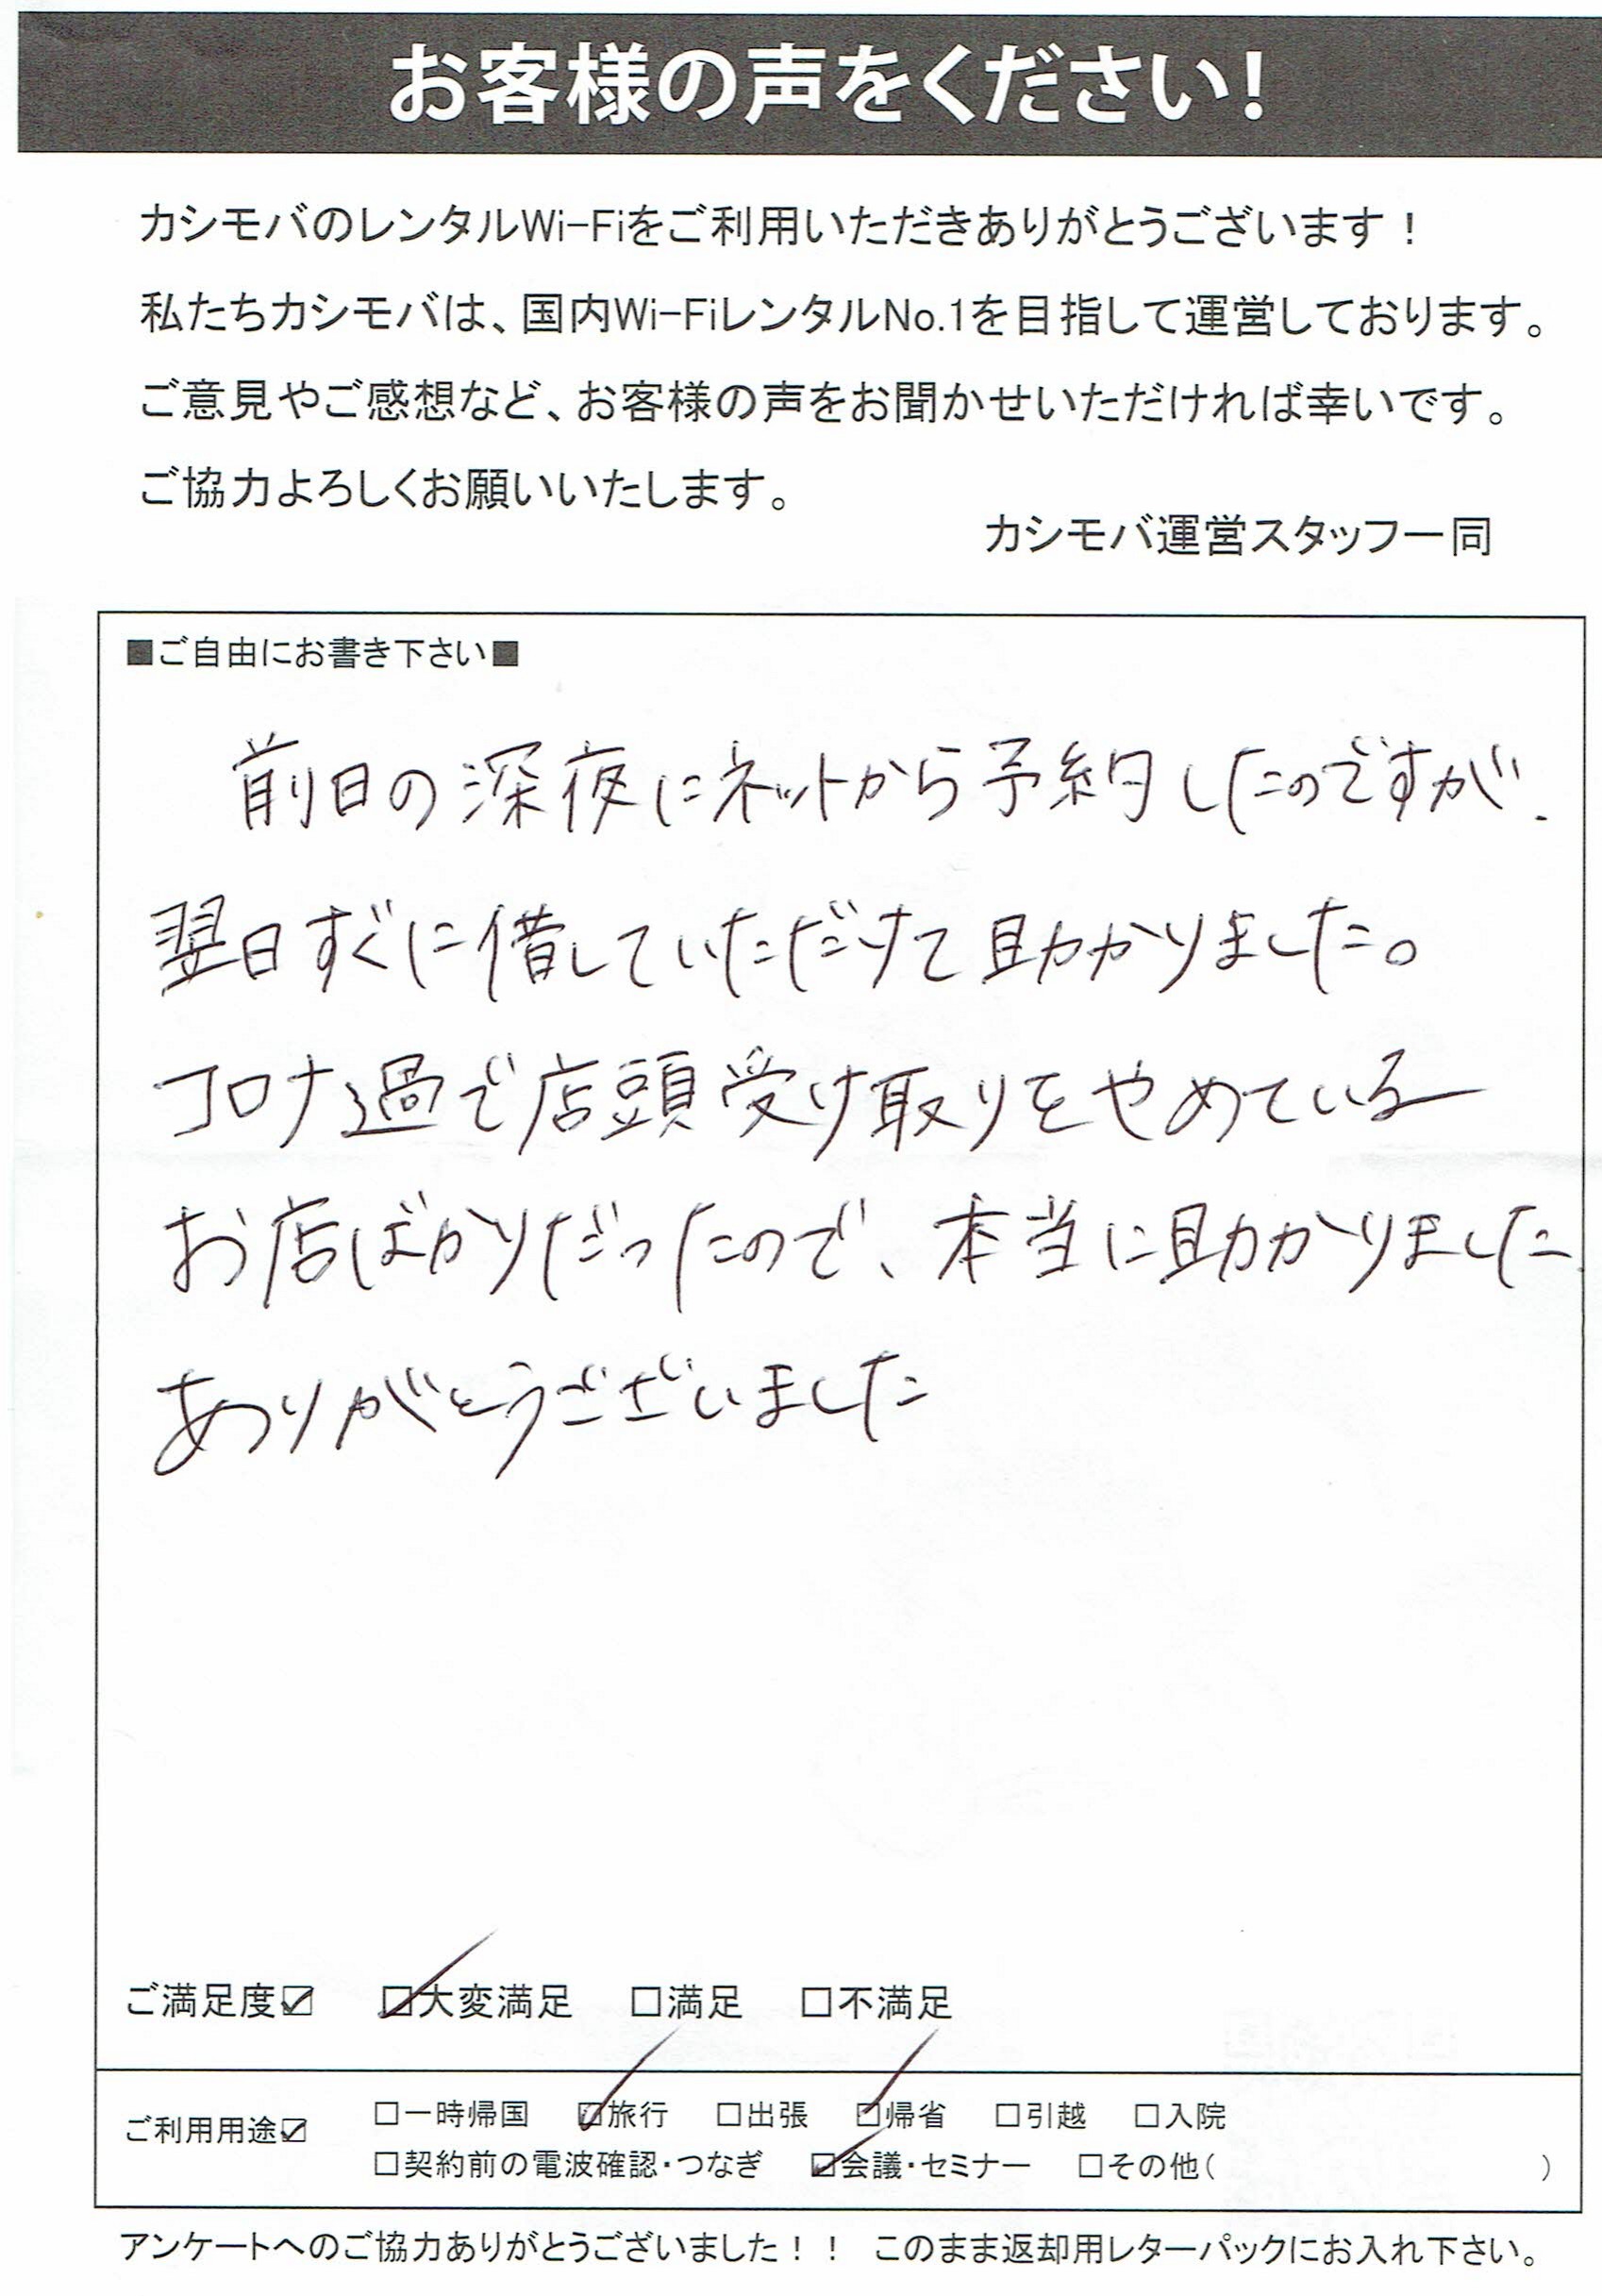 お客様の声をください!
カシモバのレンタルWi-Fiをご利用いただきありがとうございます！
私たちカシモバは、国内Wi-FiレンタルNo.1を目指して運営しております。
ご意見やご感想など、お客様の声をお聞かせいただければ幸いです。
ご協力よろしくお願いいたします。
カシモバ運営スタッフ一同
■ご自由にお書き下さい■
前日の深夜にネットから予約したのですが、
翌日すぐに借していただけて助かりました。
コロナ過で店頭受け取りをやめている
お店ばかりだったので、本当に助かりました
ありがとうございました
ご満足度☑ ☑大変満足 □満足 □不満足
ご利用用途☑ □一時帰国 ☑旅行 □出張 ☑帰省 □引越 □入院
□契約前の電波確認・つなぎ ☑会議・セミナー □その他( )
アンケートへのご協力ありがとうございました！！ このまま返却用レターパックにお入れ下さい。